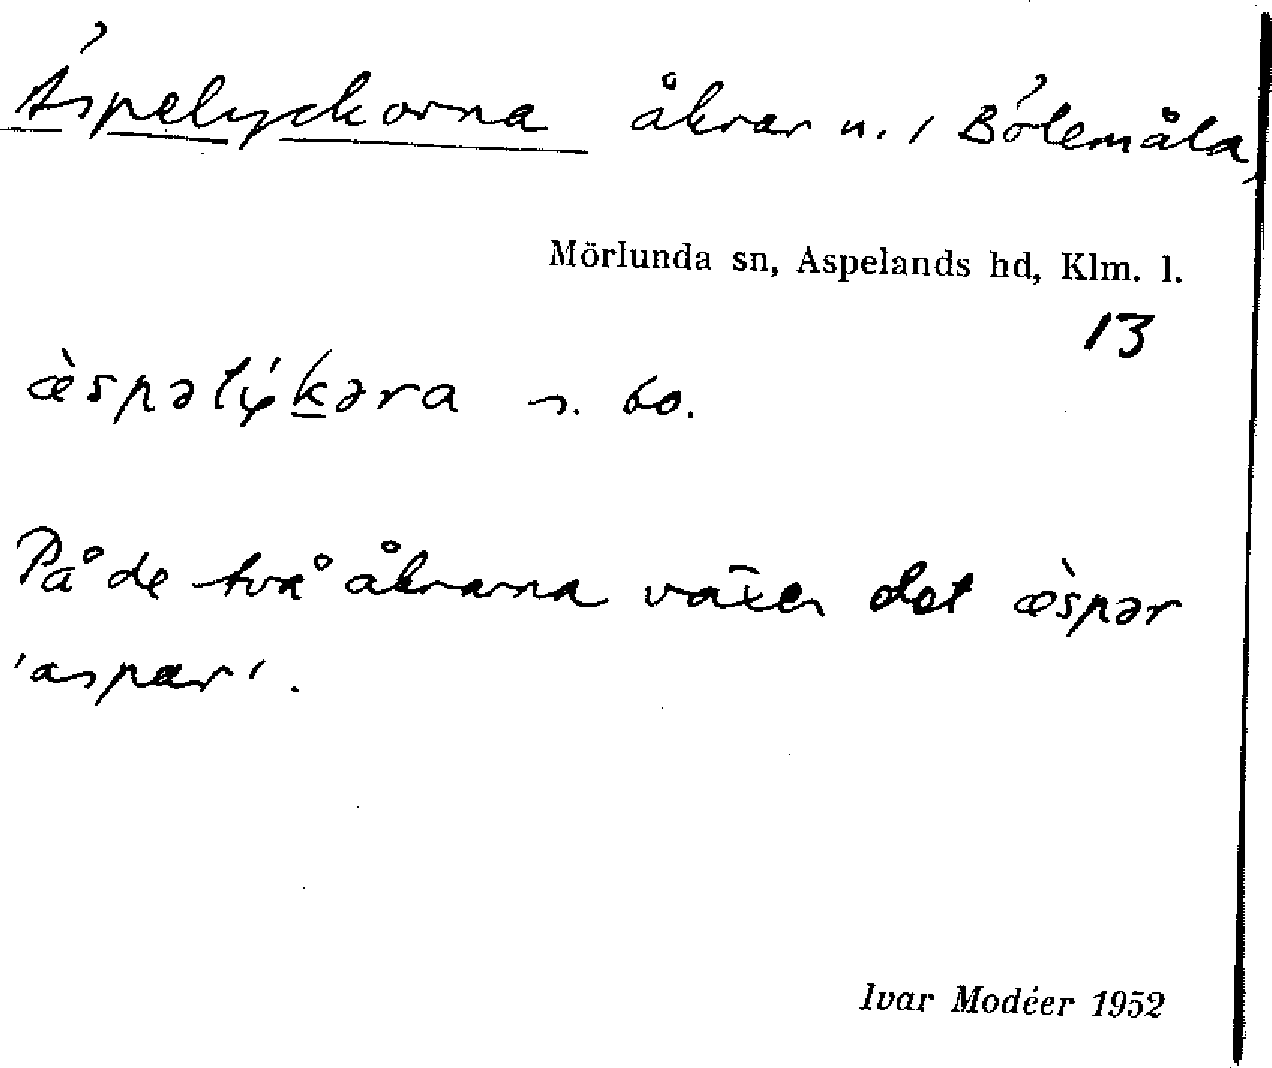 Aspelyckorna åkrar n. i Bölemåla,
Mörlunda sn, Aspelands hd, Klm. l.
13
æ̀spəlýk̲əra s. bo.
På de två åkrarna växer det æ̀spər
'aspar'.
Ivar Modéer 1952